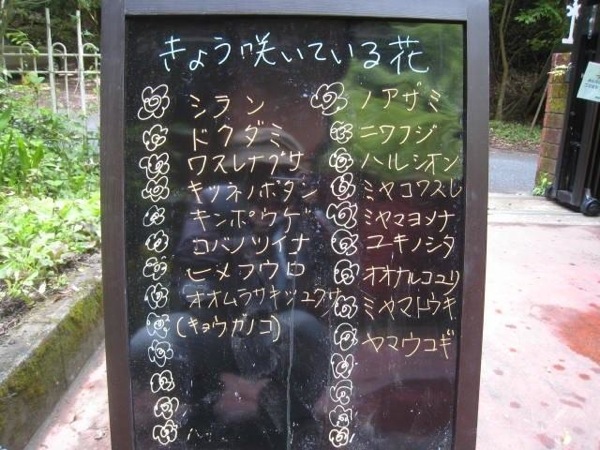 きょう咲いている花
シラン
ドクダミ
ワスレナグサ
キツネノボタン
キンポウゲ
コバノツイナ
ヒメフウロ
オオムラサキツユクサ
(キョウガノコ)
ノアザミ
ニワフジ
ハルシオン
ミヤコワスレ
ミヤマヨメナ
ユキノシタ
オオナルコユリ
ミヤマトウキ
ヤマウコギ